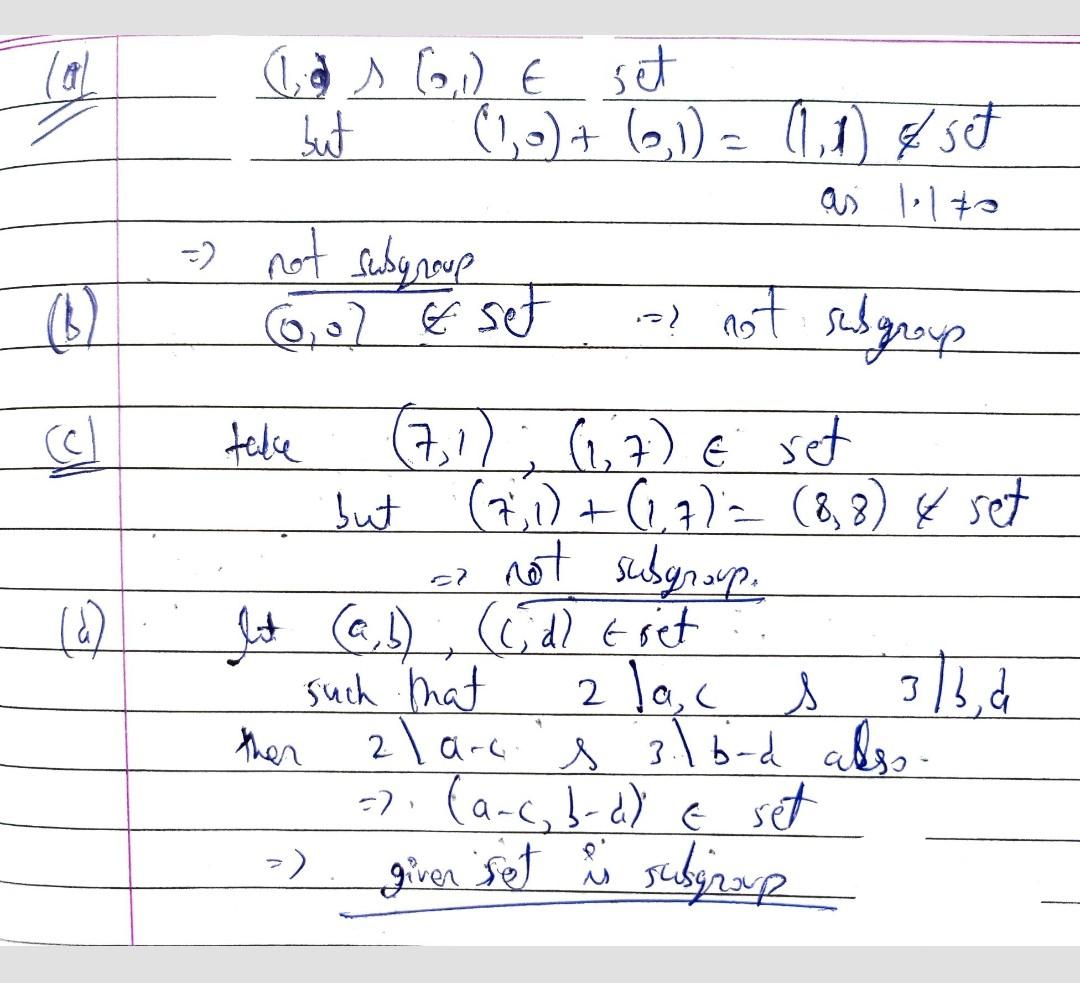 (a) (1,0) & (0,1) ∈ set
but (1,0) + (0,1) = (1,1) ∉ set
as 1·1 ≠ 0
=> not subgroup
(b) (0,0) ∉ set => not subgroup
(c) take (7,1), (1,7) ∈ set
but (7,1) + (1,7) = (8,8) ∉ set
=> not subgroup.
(d) let (a,b), (c,d) ∈ set
such that 2 | a,c & 3 | b,d
then 2 | a-c & 3 | b-d also.
=> (a-c, b-d) ∈ set
=> given set is subgroup